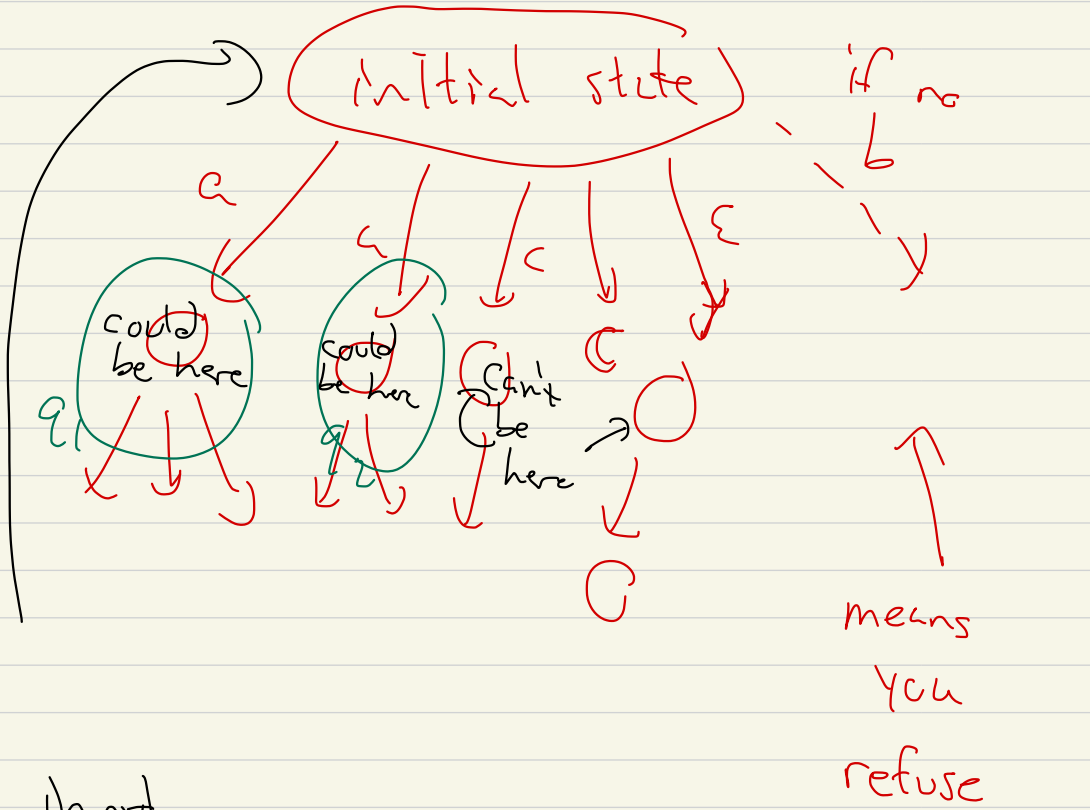 initial state
if no b
a
a
c
ε
could
be here
could
be here
can't
be
here
q1
q2
means
you
refuse